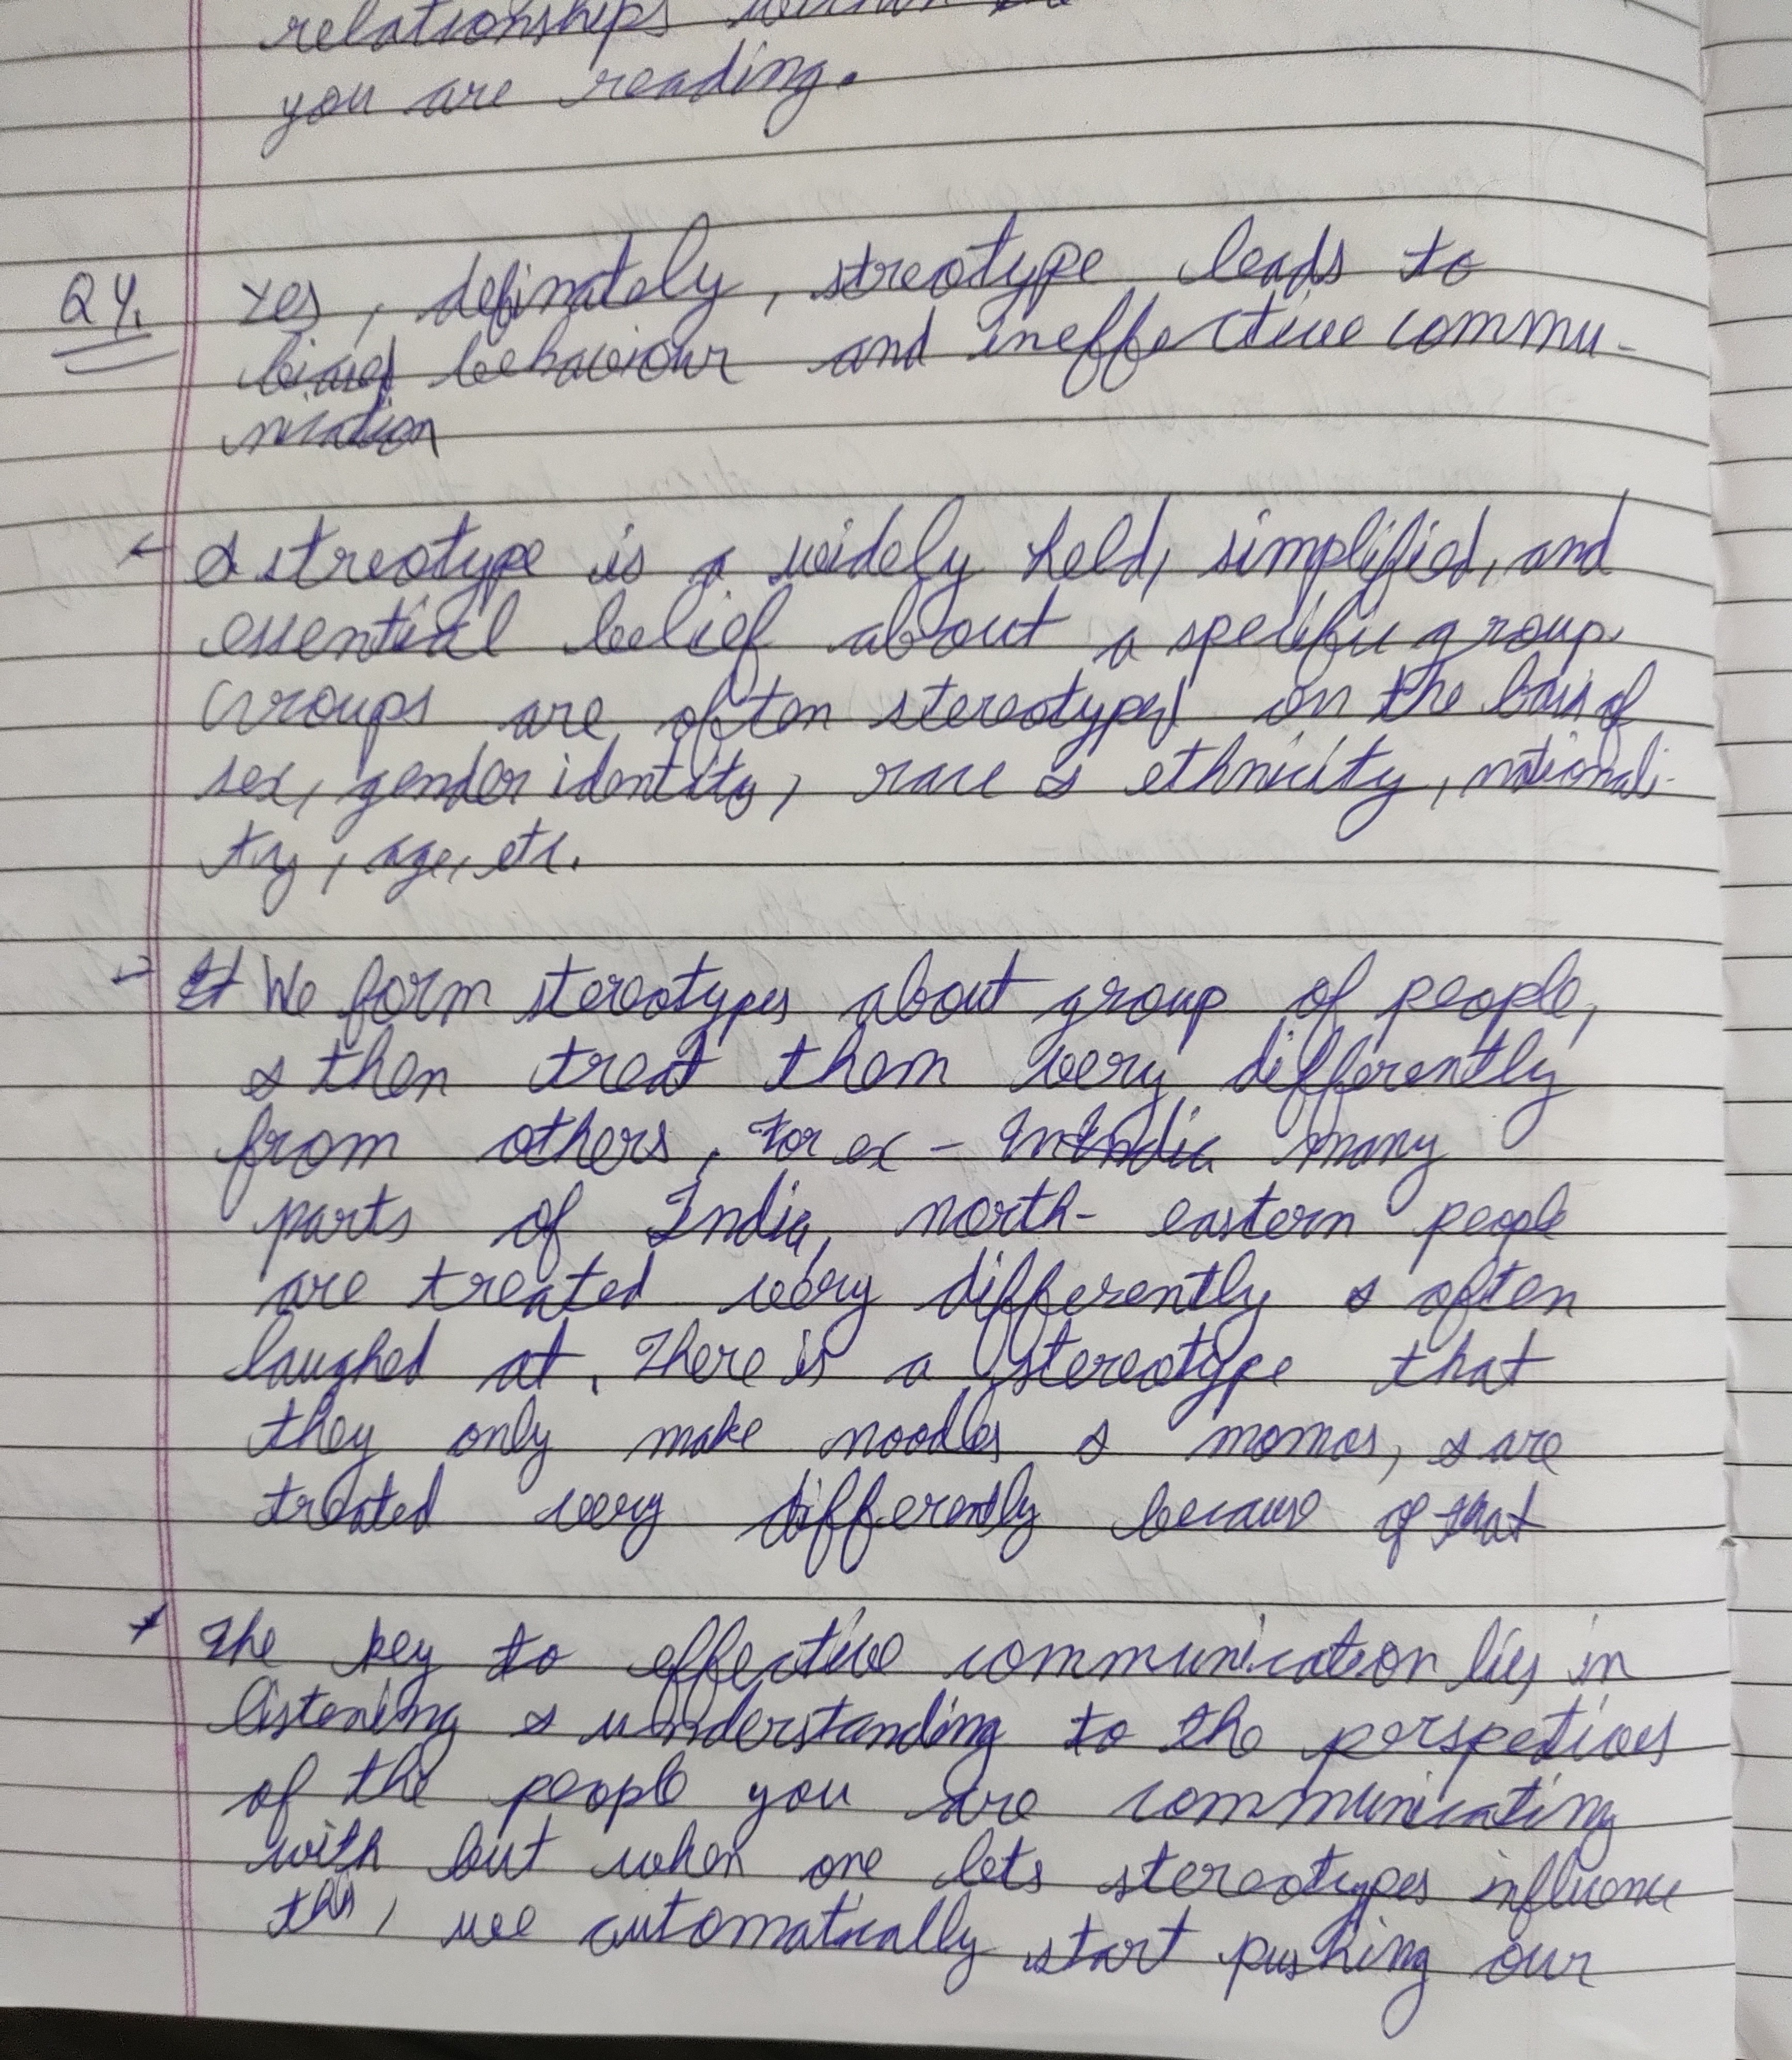 relationships within the
you are reading.
Q4. Yes, definately, streotype leads to
biased behaviour and ineffective commu-
nication
A streotype is a widely held, simplified, and
essential belief about a specific group.
Groups are often stereotyped on the basis of
sex, gender identity, race & ethnicity, nationali-
ty, age, etc.
We form stereotypes about group of people,
& then treat them very differently
from others, For ex - many
parts of India, north-eastern people
are treated very differently & often
laughed at. There is a stereotype that
they only make noodles & momos, & are
treated very differently because of that
* The key to effective communication lies in
listening & understanding to the perspetives
of the people you are communicating
with but when one lets stereotypes influence
this, we automatically start pushing our